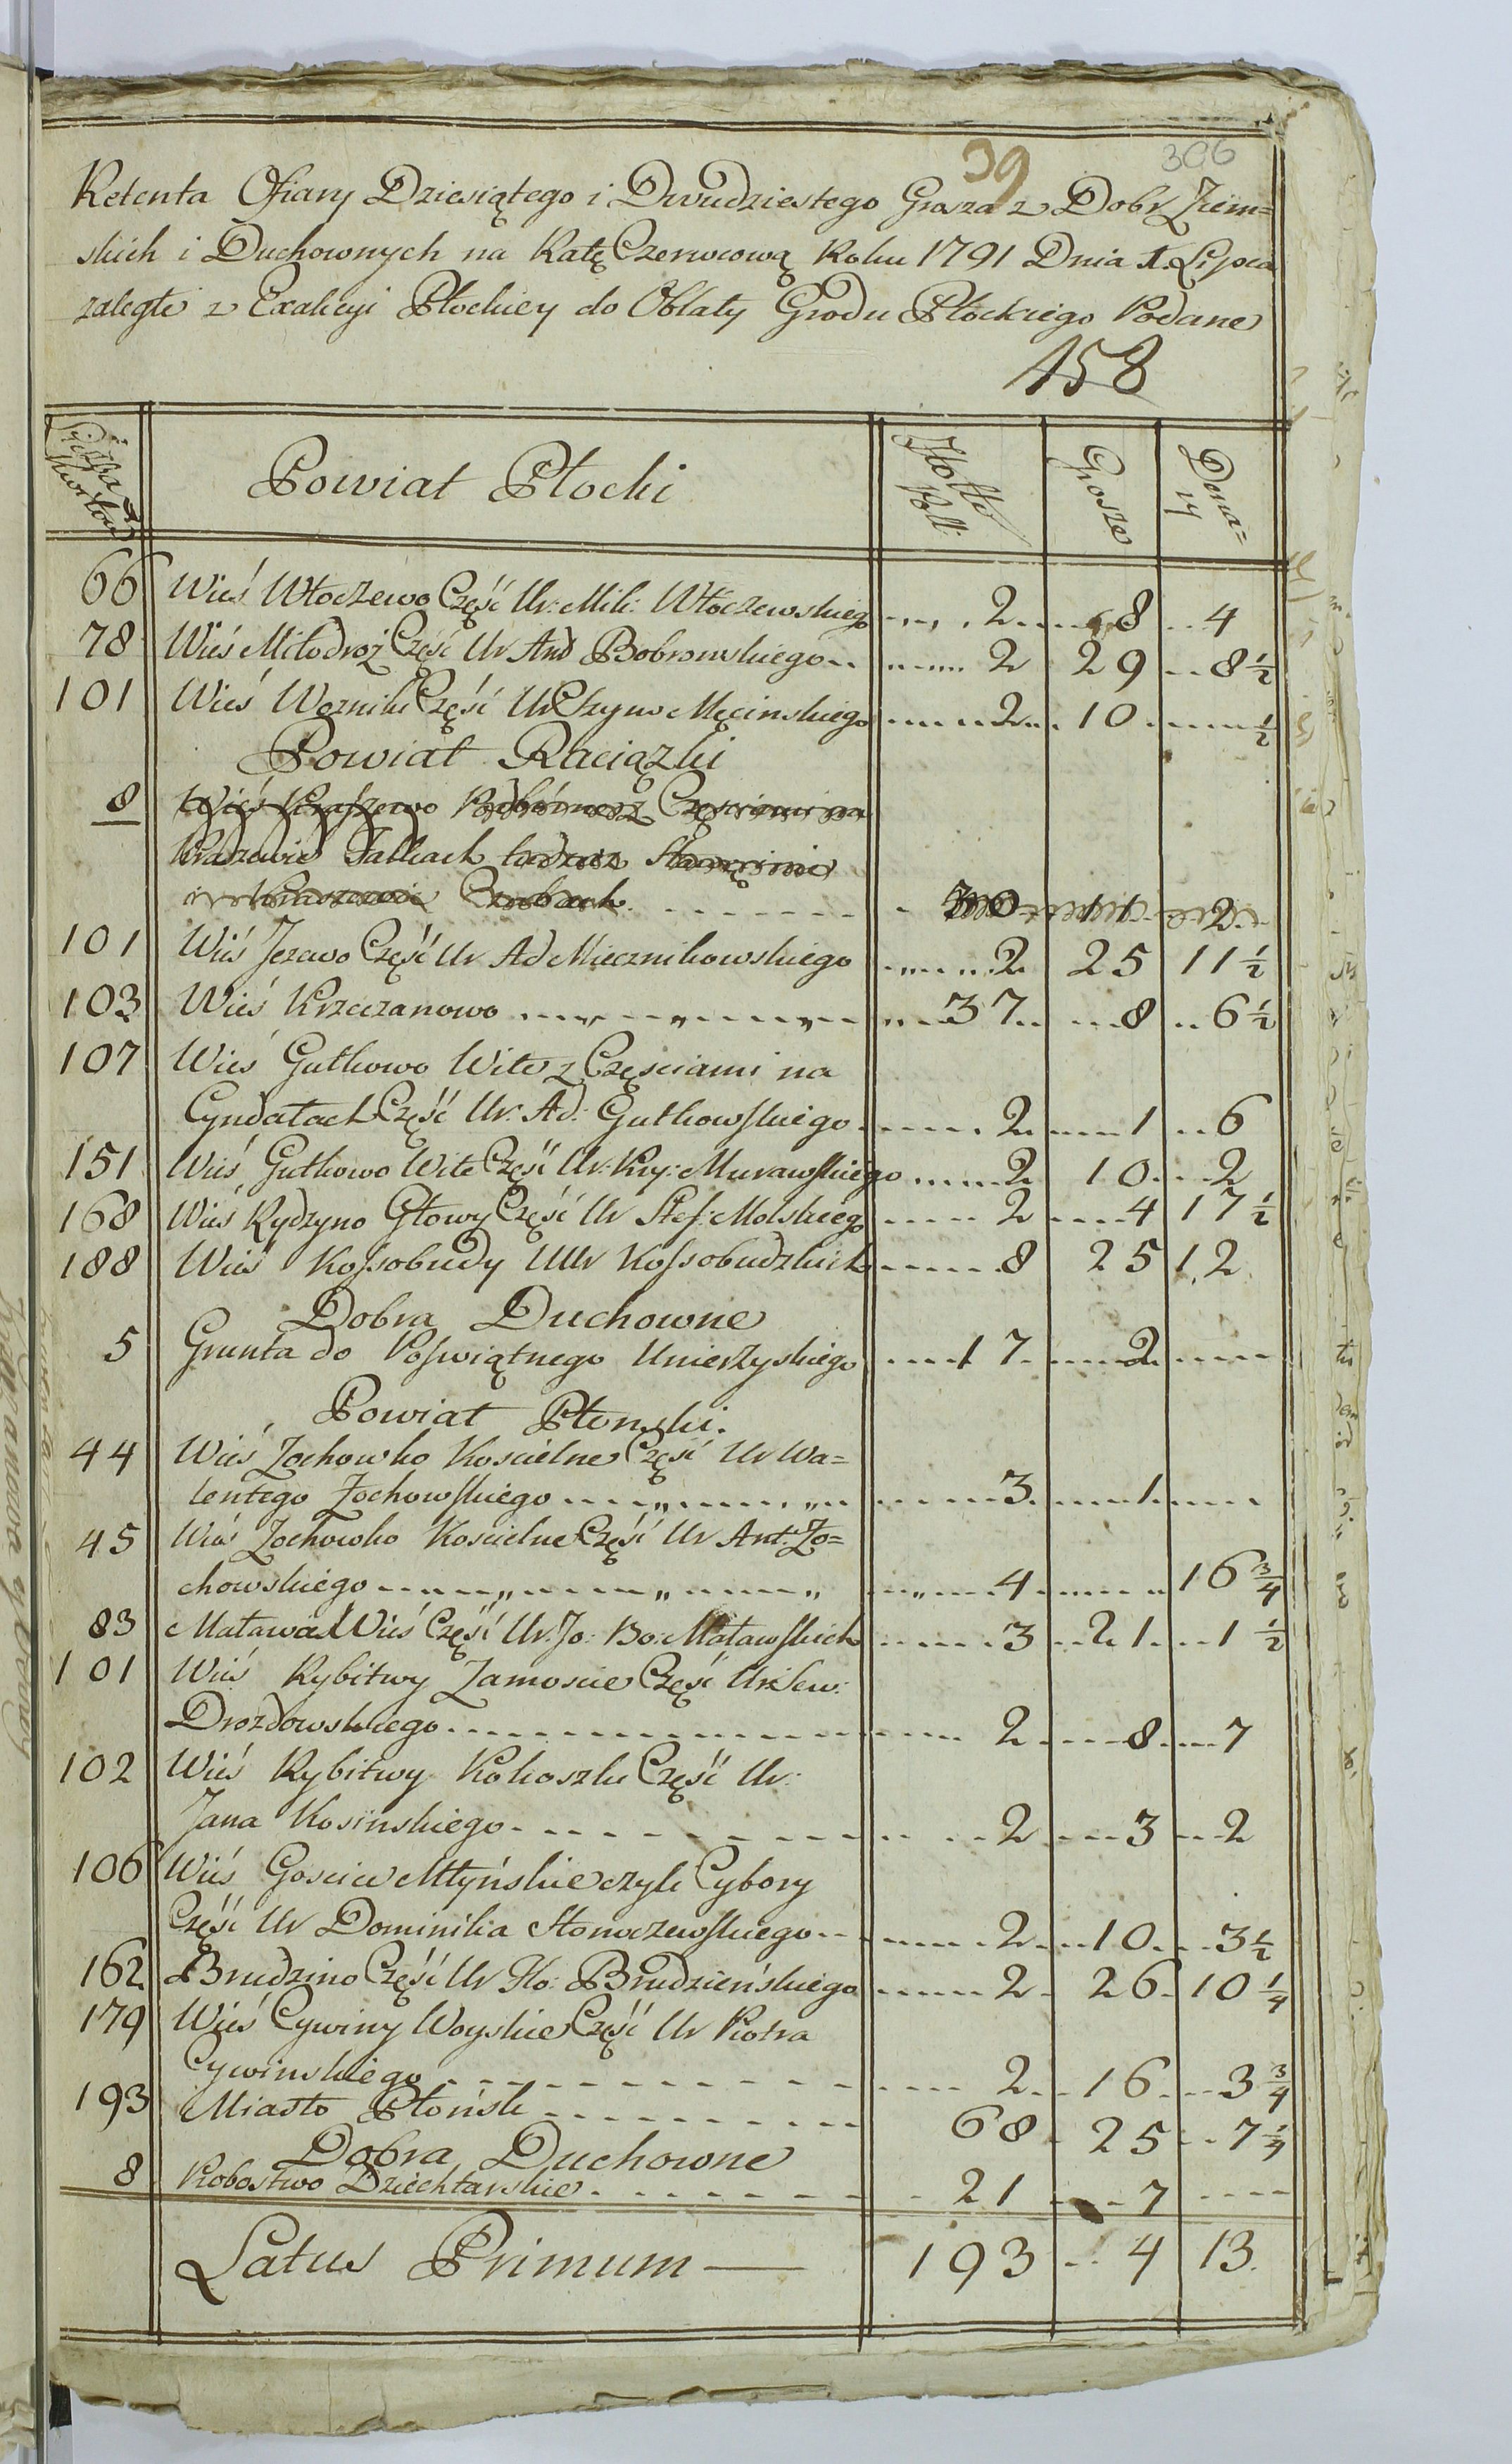 39 306
Retenta Ofiary Dziesiątego i Dwudziestego Grosza z Dobr Ziem=
skich i Duchownych na Ratę Czerwcową Roku 1791 Dnia 1. Lipca
zaległe z Exakcyi Płockiey do Oblaty Grodu Płockiego Podane
158
Liczba Kwitow Powiat Płocki Złotto Poll: Grosze Dena=ry
66 Wieś Włoczewo Część Ur: Mik: Włoczewskiego 2 8 4
78 Wieś Miłodroż Część Ur And Bobrowskiego 2 29 8 1/2
101 Wieś Woznik Część Ur Szyno Męcinskiego 2 10 1/2
Powiat Raciązki
8 Wieś Kraszewo Podbórnesz Częsciami na
Kraszewie Falkach tudziesz
i Kraszewie Czubach 30 11 2
101 Wieś Jezewo Część Ur Ad Miecznikowskiego 2 25 11 1/2
103 Wieś Krzeczanowo 37 8 6 1/2
107 Wieś Gutkowo Wite z Częsciami na
Cyndatach Część Ur: Ad: Gutkowskiego 2 1 6
151 Wieś Gutkowo Wite Część Ur: Kry: Murawskiego 2 10 2
168 Wieś Rydzyno Głowy Część Ur Stef: Molskiego 2 4 17 1/2
188 Wieś Kossobudy UUr Kossobudzkich 8 25 12
Dobra Duchowne
5 Grunta do Poswiątnego Unierzyskiego 17 2
Powiat Płonski.
44 Wieś Zochowko Koscielne Część Ur Wa=
lentego Zochowskiego 3 1
45 Wieś Zochowko Koscielne Część Ur Ant: Zo=
chowskiego 4 16 3/4
83 Matawa Wieś Część Ur: Jo: Bo: Matawskich 3 21 1 1/2
101 Wieś Rybitwy Zamoscie Część Ur: Sew:
Drozdowskiego 2 8 7
102 Wieś Rybitwy Kokoszki Część Ur:
Jana Kosinskiego 2 3 2
106 Wieś Goscice Młyńskie czyli Cybory
Część Ur Dominika Słonczewskiego 2 10 3 1/2
162 Brudzino Część Ur Flo: Brudzieńskiego 2 26 10 1/4
179 Wieś Cywiny Woyskie Część Ur Piotra
Cywinskiego 2 16 3 3/4
193 Miasto Płońsk 68 25 7 1/4
Dobra Duchowne
8 Probostwo Dziechtarskie 21 7
Latus Primum 193 4 13